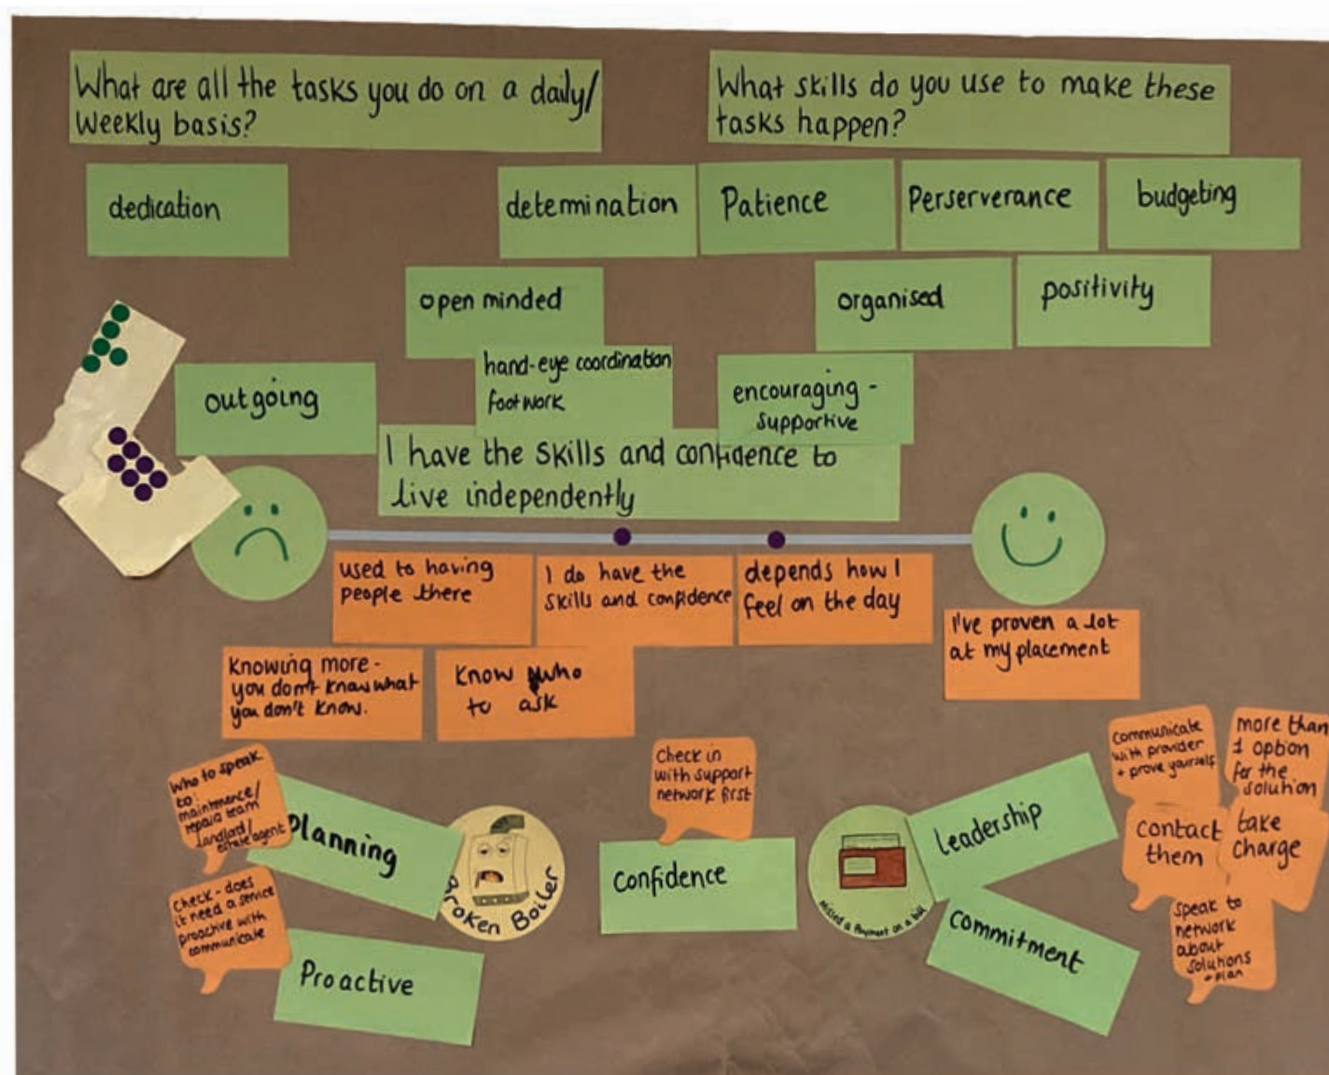 What are all the tasks you do on a daily/
Weekly basis?
What skills do you use to make these
tasks happen?
dedication
determination
Patience
Perserverance
budgeting
open minded
organised
positivity
outgoing
hand-eye coordination
footwork
encouraging -
supportive
I have the skills and confidence to
live independently
used to having
people there
I do have the
skills and confidence
depends how I
feel on the day
I've proven a lot
at my placement
Knowing more -
you don't know what
you don't know.
Know who
to ask
Who to speak
to
maintmence/
repaid team
landlord/
estate agent
Planning
Broken Boiler
Check - does
it need a service
proactive with
communicate
Proactive
Check in
with support
network first
Confidence
Missed a Payment on a bill
leadership
commitment
communicate
with provider
+ prove yourself
more than
1 option
for the
solution
contact
them
take
charge
speak to
network
about
solutions
+ plan